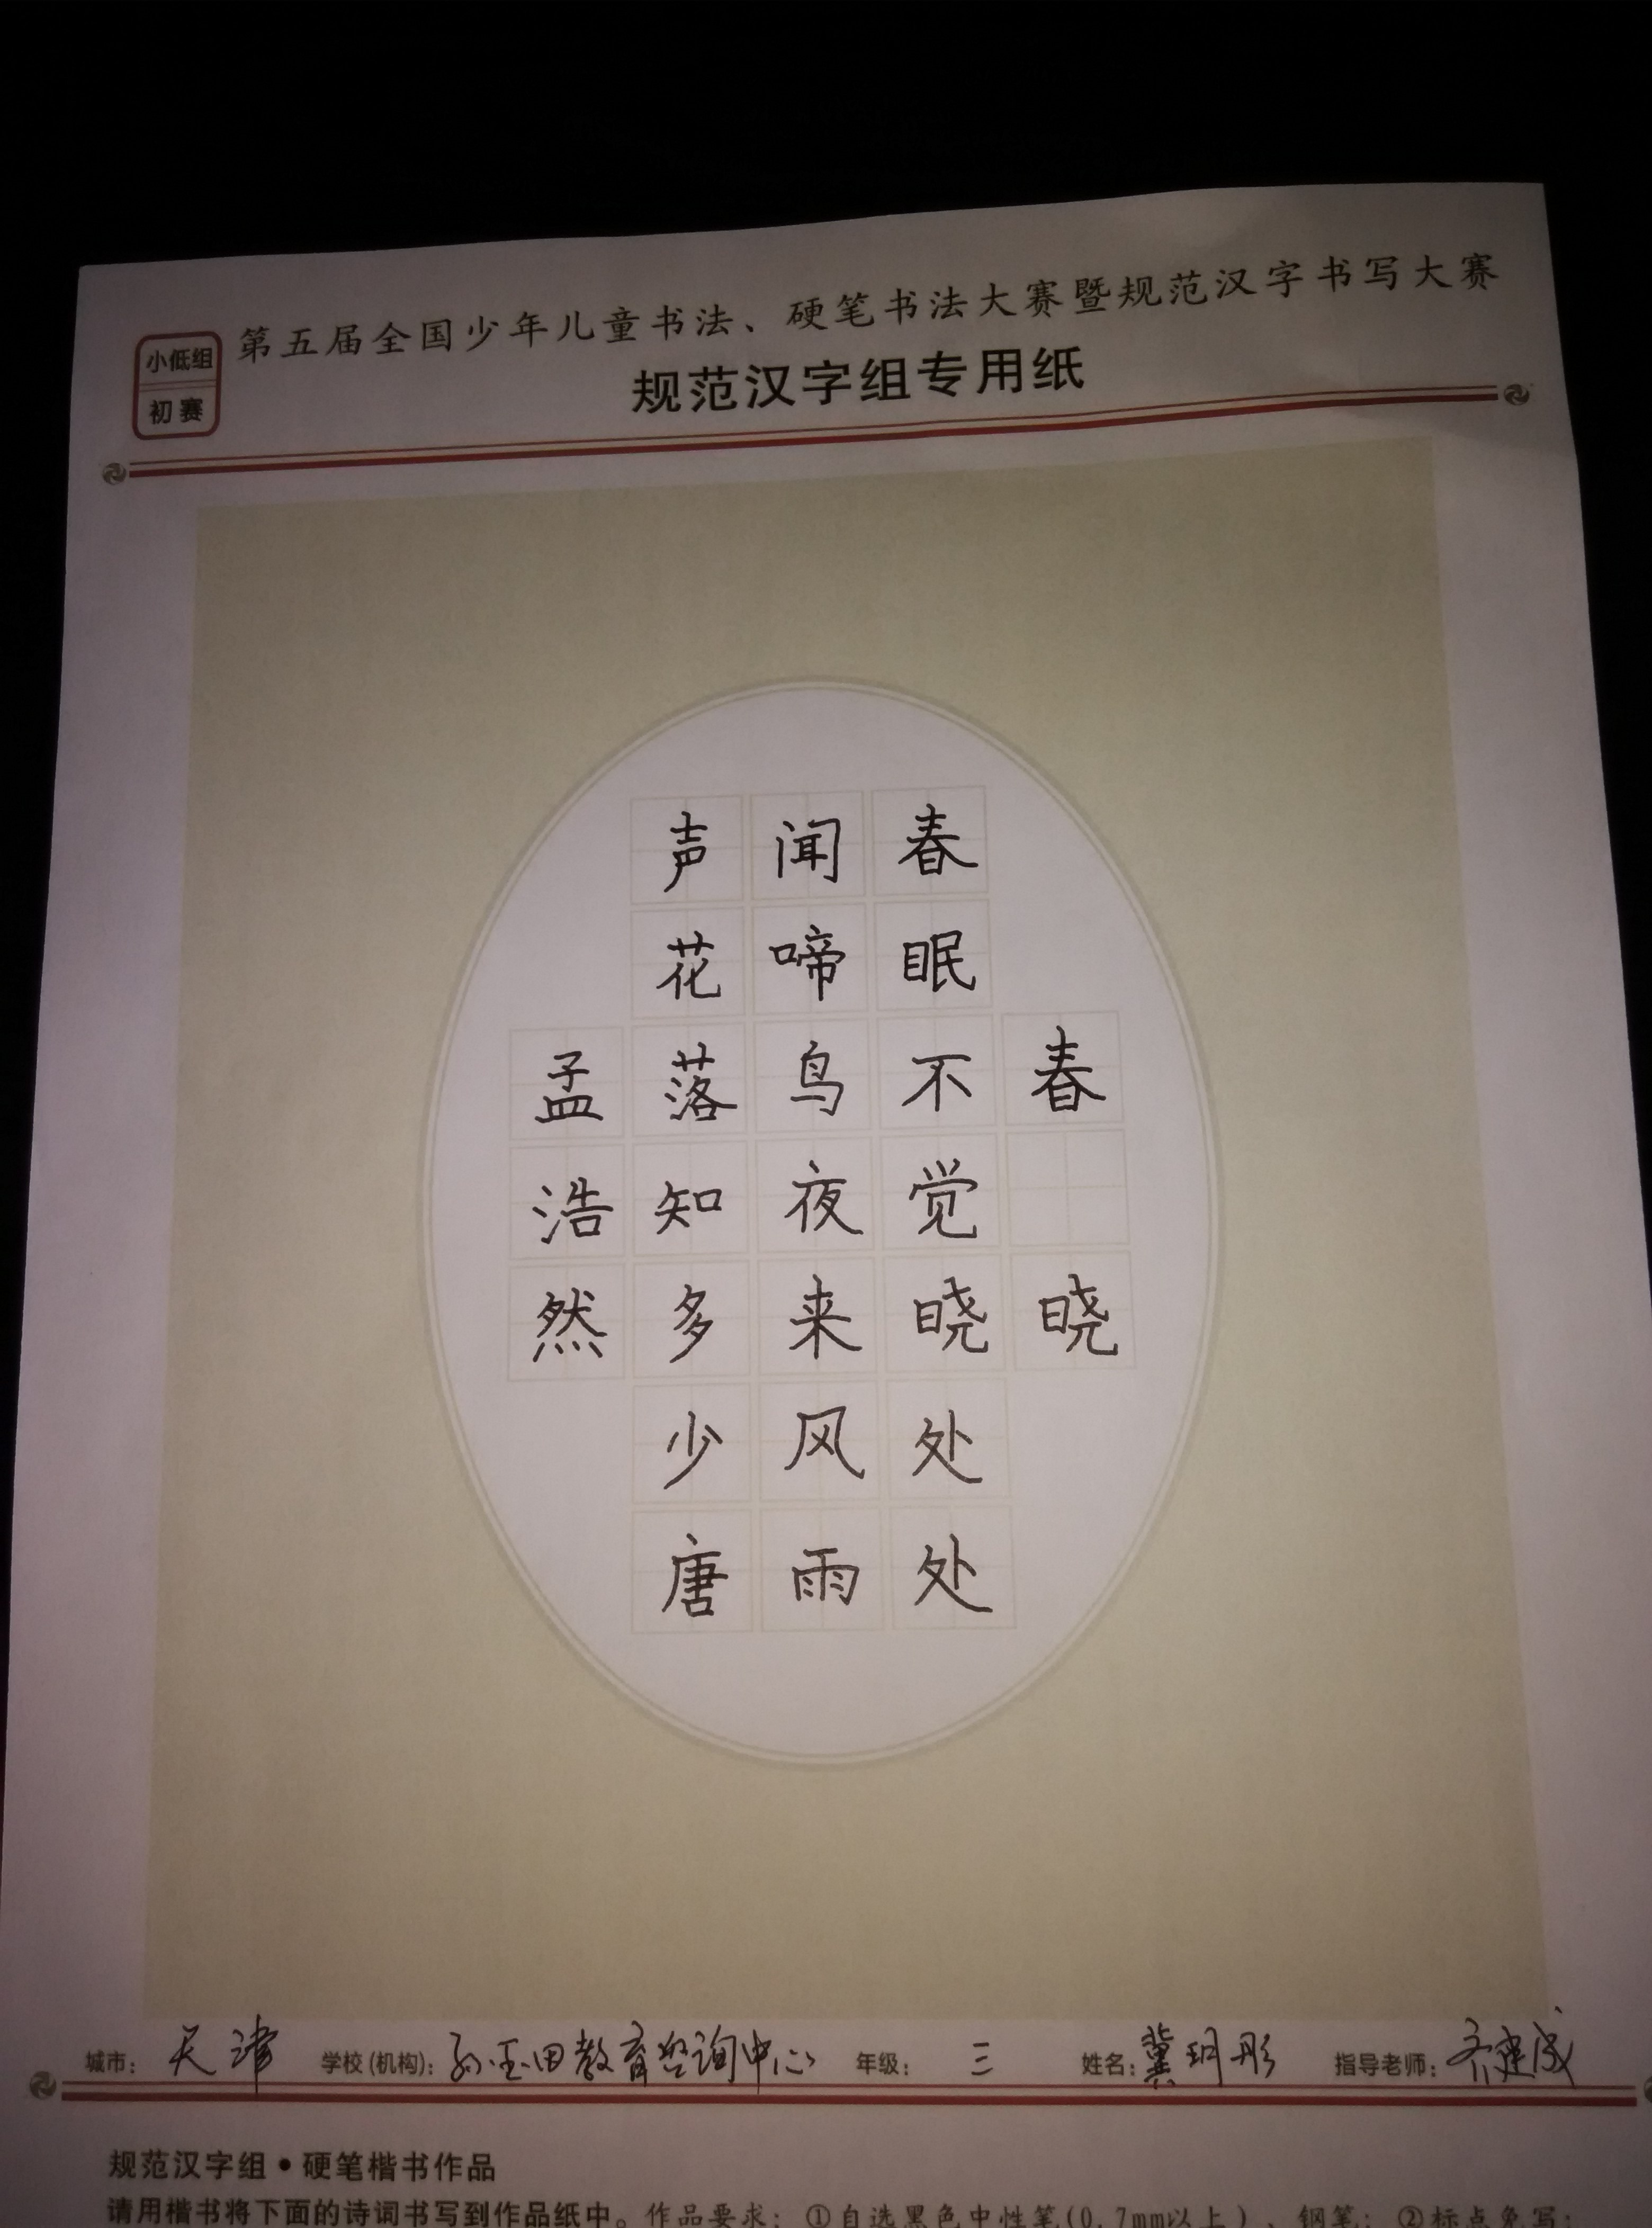 小低组
初赛
第五届全国少年儿童书法、硬笔书法大赛暨规范汉字书写大赛
规范汉字组专用纸
春晓
春眠不觉晓处处
闻啼鸟夜来风雨
声花落知多少唐
孟浩然
城市：天津 学校(机构)：孙玉田教育咨询中心 年级：三 姓名：冀玥彤 指导老师：齐建成
规范汉字组•硬笔楷书作品
请用楷书将下面的诗词书写到作品纸中。作品要求：①自选黑色中性笔(0.7mm以上)、钢笔；②标点免写；